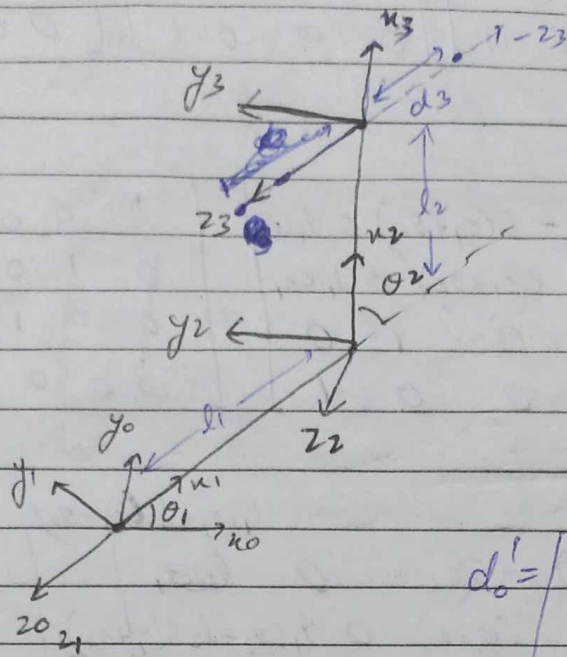 x3
-z3
y3
d3
z3
l2
x2
θ2
y2
l1
z2
y0
y1
x1
θ1
x0
z0 z1
d₀¹ =